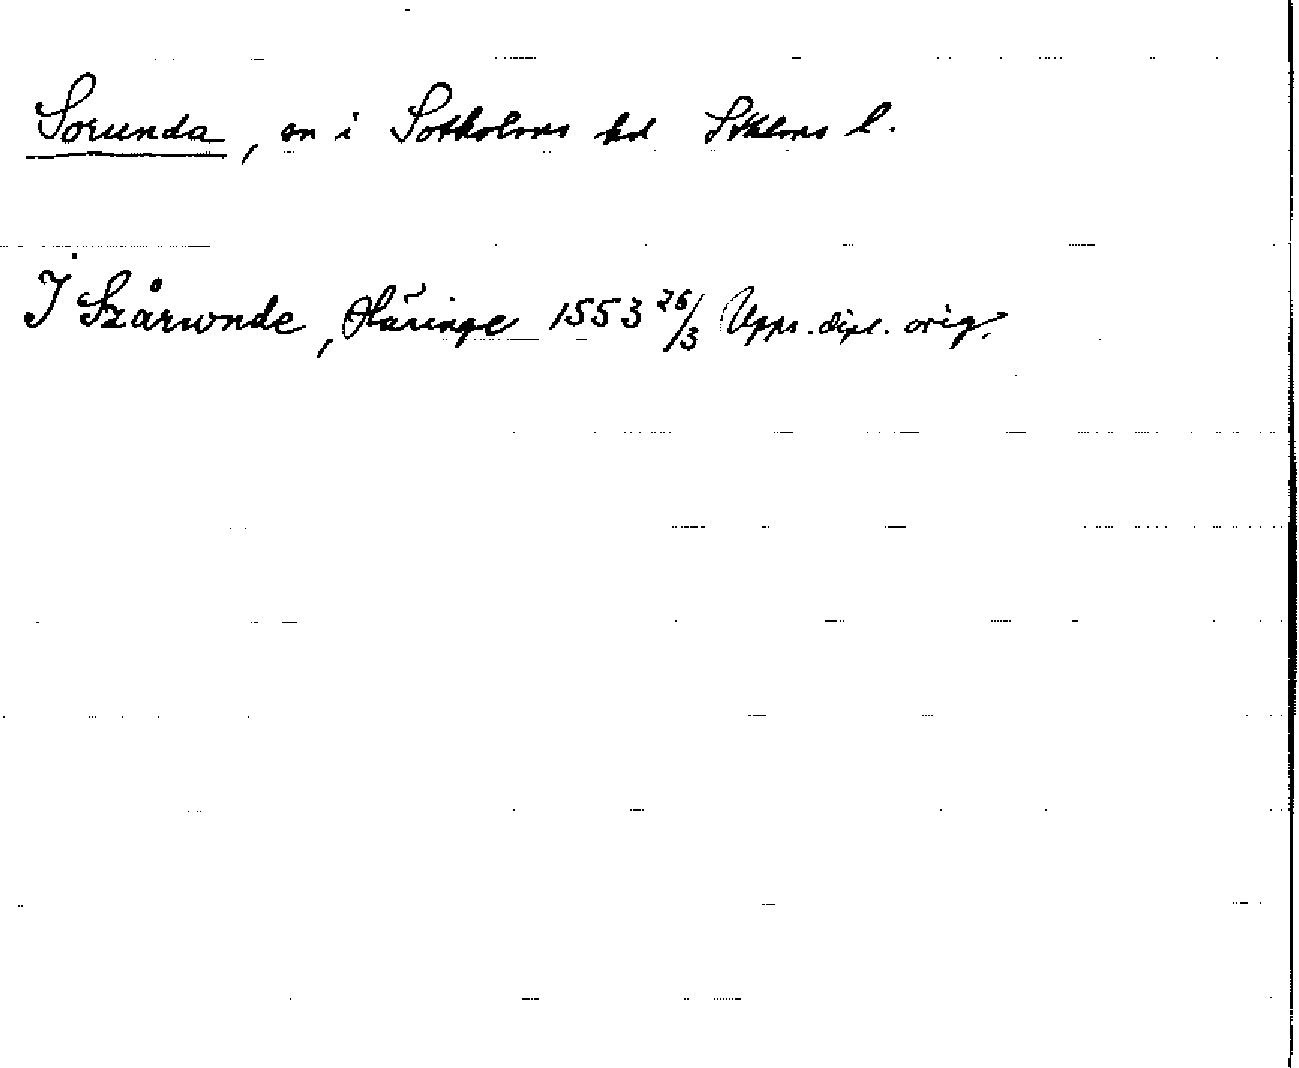 Sorunda, sn i Sotholms hd Sthlms l.
I Szårwnde, Häringe 1553 26/3 Upps. dipl. orig.